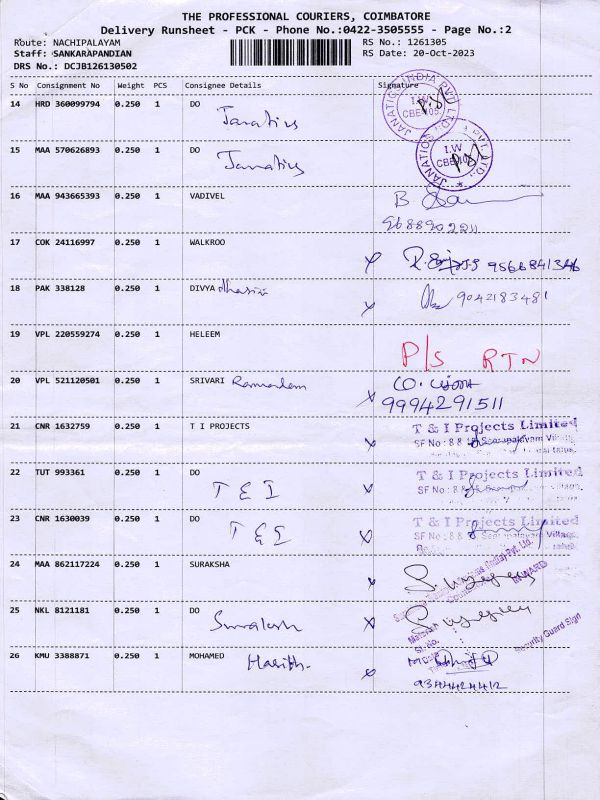 THE PROFESSIONAL COURIERS, COIMBATORE
Delivery Runsheet - PCK - Phone No.:0422-3505555 - Page No.:2
Route: NACHIPALAYAM RS No.: 1261305
Staff: SANKARAPANDIAN RS Date: 20-Oct-2023
DRS No.: DCJB126130502
S No Consignment No Weight PCS Consignee Details Signature
14 HRD 360099794 0.250 1 DO
Janatics
JANATICS INDIA PVT LTD I.W CBE-105
15 MAA 570626893 0.250 1 DO
Janatics
JANATICS PVT.LTD. I.W CBE
16 MAA 943665393 0.250 1 VADIVEL B
17 COK 24116997 0.250 1 WALKROO
18 PAK 338128 0.250 1 DIVYA 9042183481
19 VPL 220559274 0.250 1 HELEEM
P/S RTN
20 VPL 521120501 0.250 1 SRIVARI
9994291511
21 CNR 1632759 0.250 1 T I PROJECTS T & I Projects Limited
SF No : 8 8 Village
22 TUT 993361 0.250 1 DO T & I Projects Limited
T & I SF No : 8 8 Village
23 CNR 1630039 0.250 1 DO T & I Projects Limited
T & I SF No : 8 8 Village
24 MAA 862117224 0.250 1 SURAKSHA
INWARD
25 NKL 8121181 0.250 1 DO
Security Guard Sign
26 KMU 3388871 0.250 1 MOHAMED Harith
9344424412